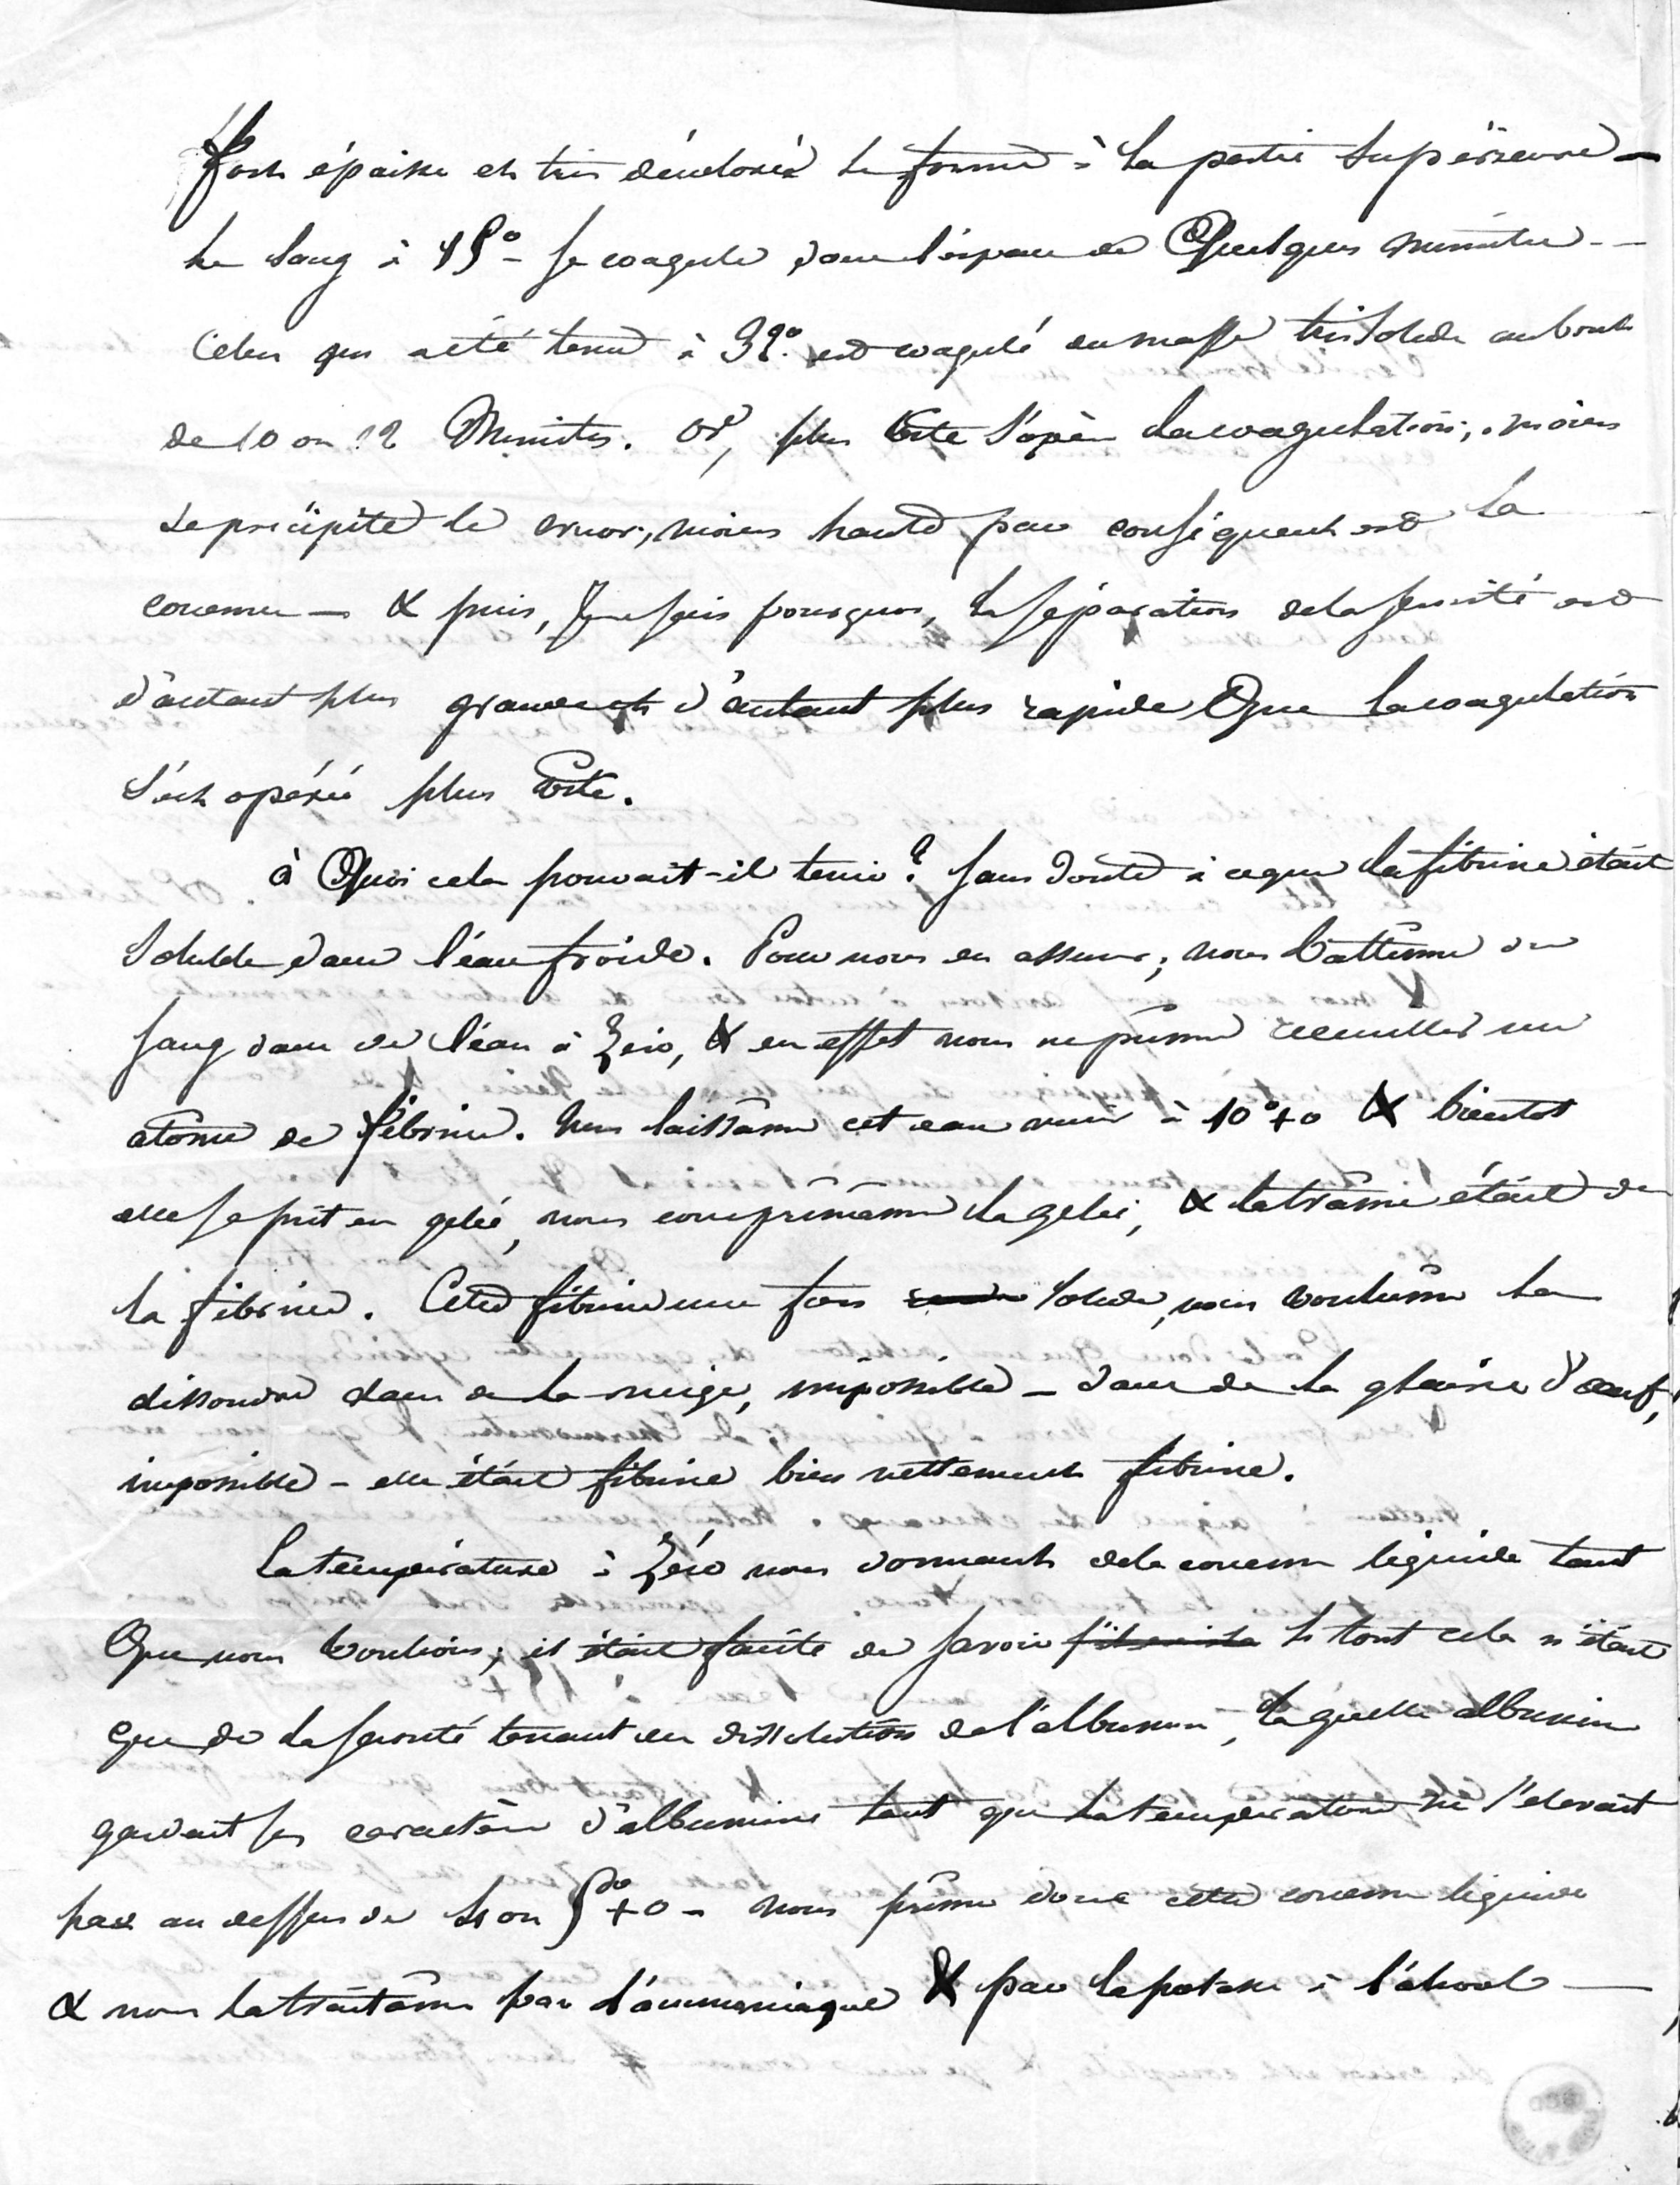 fort épaisse et très décolorée se forme à la partie supérieure —
le sang à 15° — se coagule dans l'espace de Quelques minutes —
Celui qui a été tenu à 32°. est coagulé en masse très solide au bout
de 10 ou 12 Minutes. Or, plus vite s'opère la coagulation, moins
se précipite le cruor, moins haute par conséquent est la
couenne — & puis, je ne sais pourquoi, la séparation de la sérosité est
d'autant plus grande et d'autant plus rapide Que la coagulation
s'est opérée plus vite.
à Quoi cela pouvait-il tenir ? sans doute à ce que la fibrine était
soluble dans l'eau froide. Pour nous en assurer, nous battîmes du
sang dans de l'eau à Zéro, & en effet nous ne pûmes recueillir un
atôme de fibrine. Nous laissâmes cet eau venir à 10°+0 & bientot
elle se prit en gelée, nous comprimâmes la gelée, & la trâme était de
la fibrine. Cette fibrine une fois solide, nous voulûmes la
dissoudre dans de la neige, impossible — dans de la glaire d'oeuf,
impossible — elle était fibrine bien nettement fibrine.
La température à Zéro nous donnant de la couenne liquide tant
Que nous voulions, il était facile de savoir si tout cela n'était
que de la sérosité tenant en dissolution de l'albumine, laquelle albumine
gardait ses caractères d'albumine tant que la température ne s'élevait
pas au dessus de 4 ou 5°+0 — nous prîmes donc cette couenne liquide
& nous la traitâmes par l'ammoniaque & par la potasse à l'alcool —